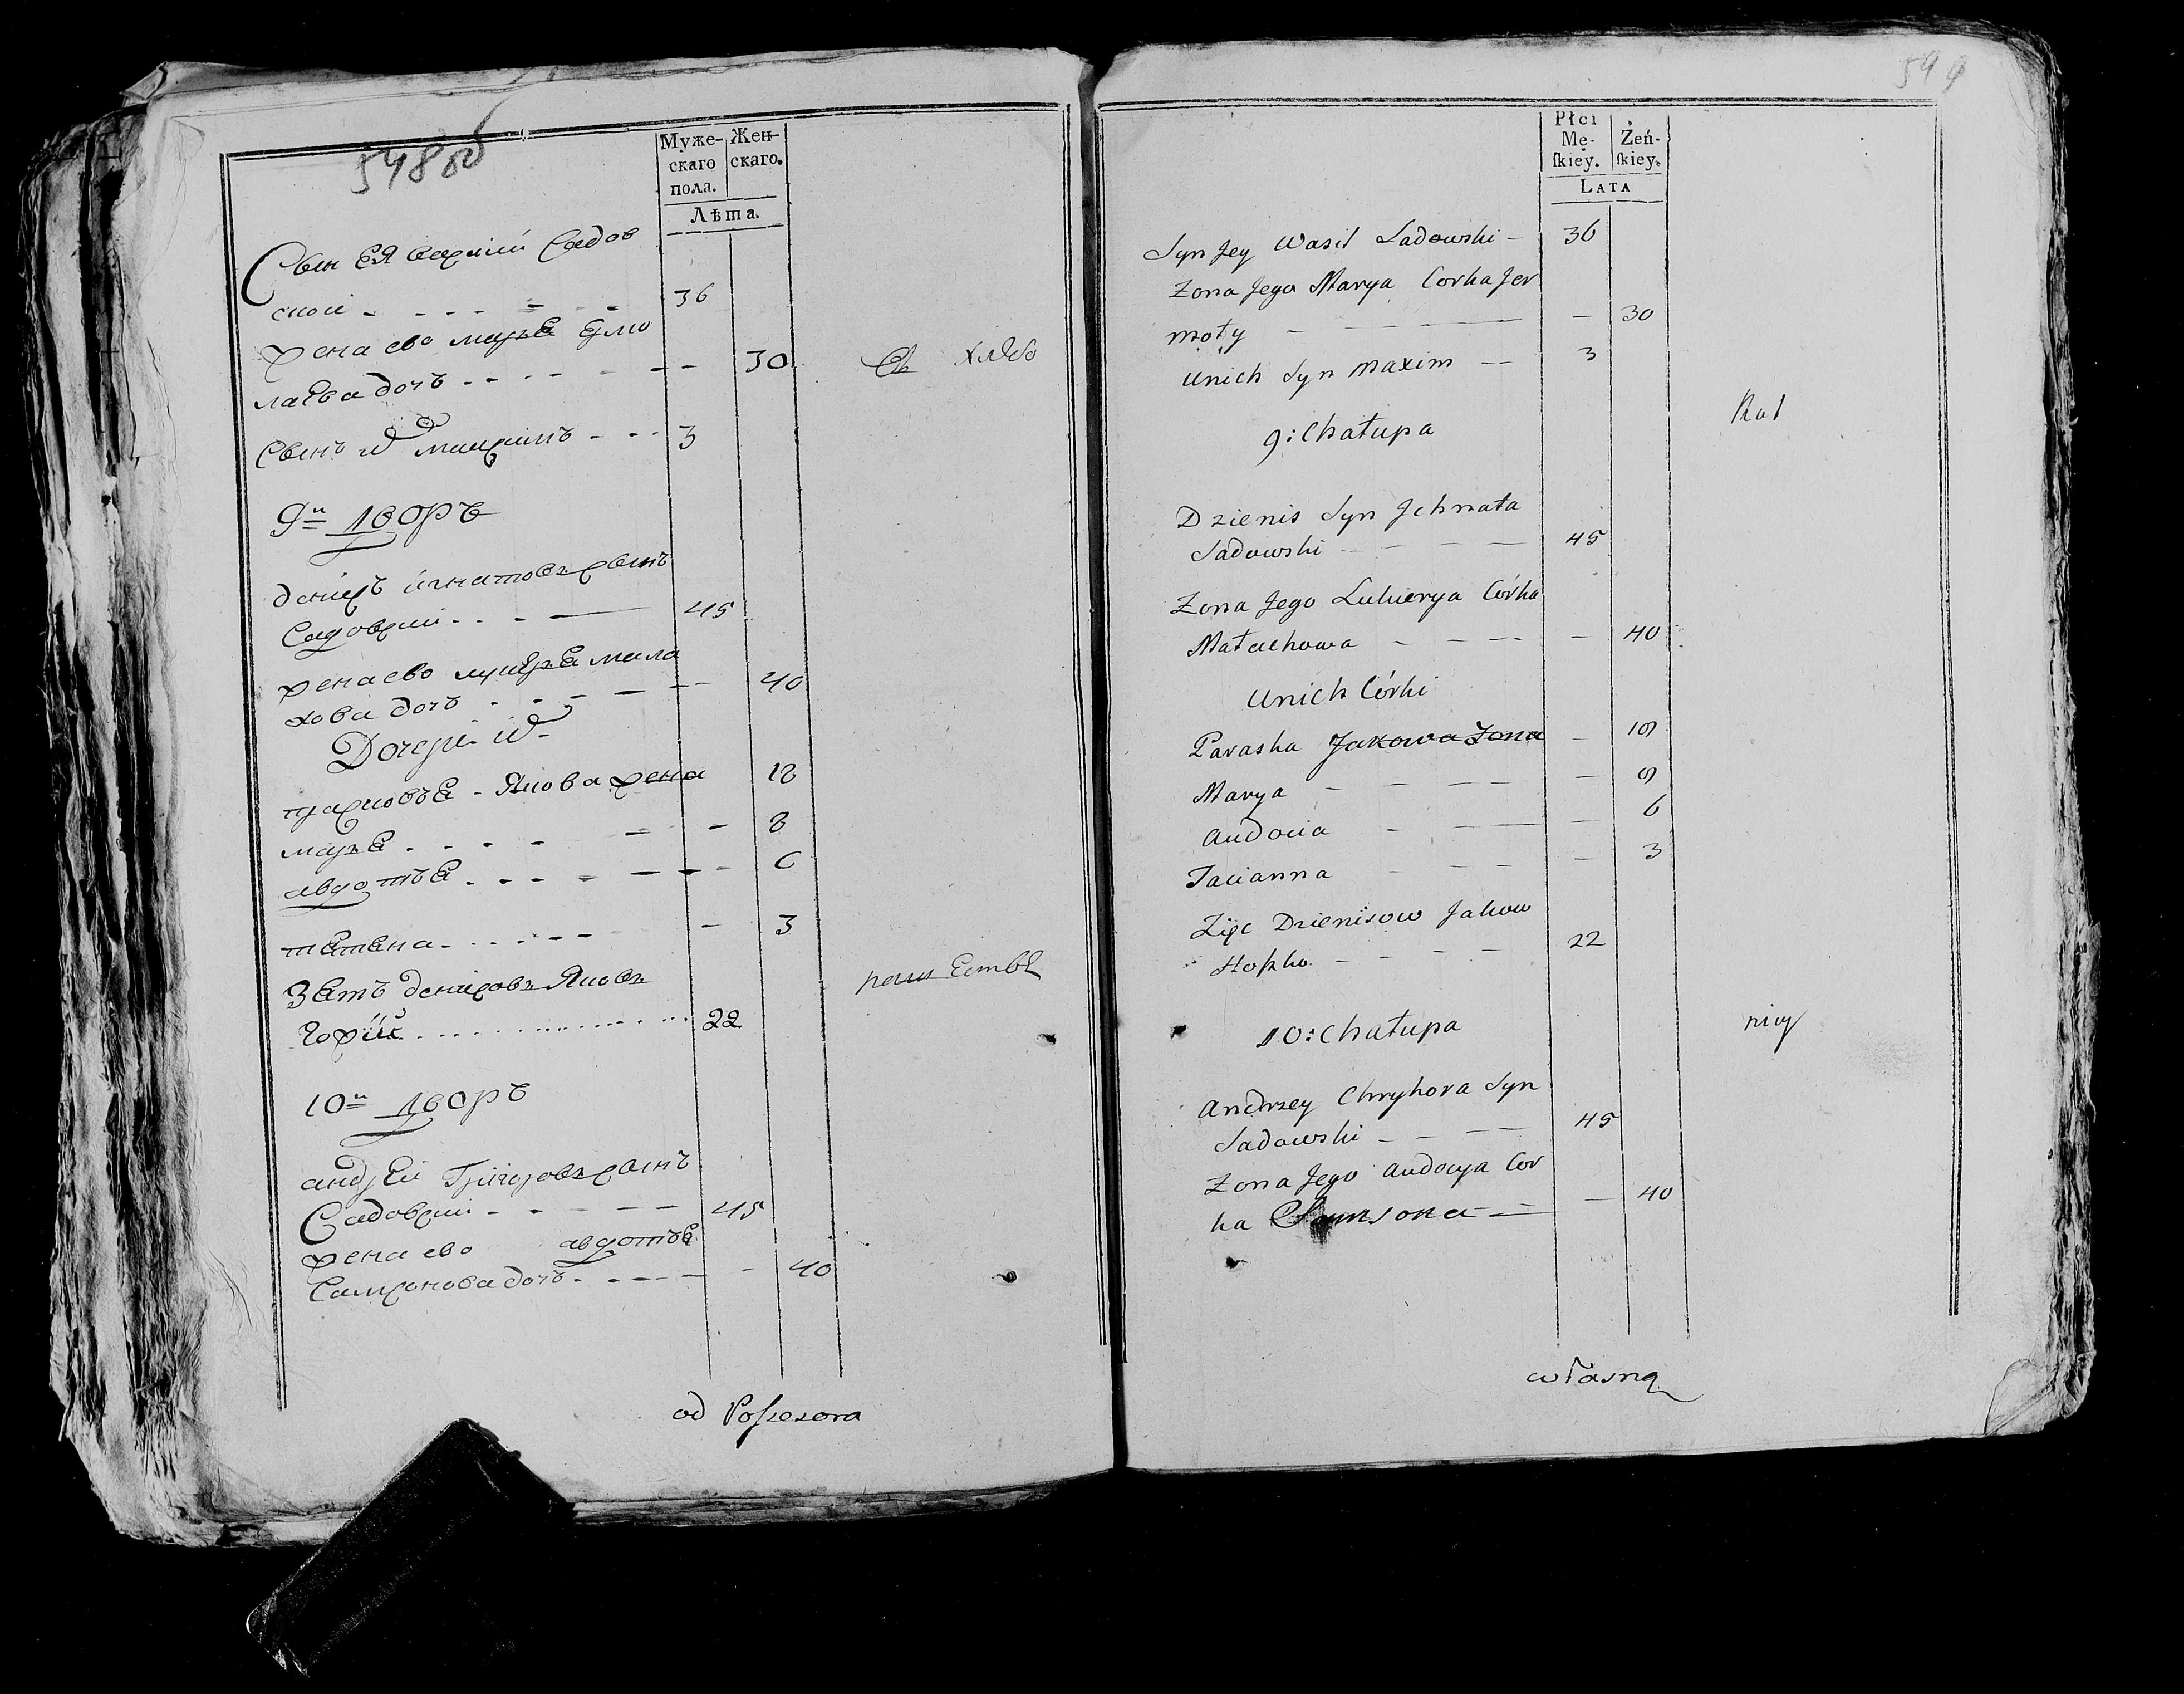 548 об
Муже-
скаго
пола.
Жен-
скаго.
Лѣта.
Сынъ ея василий Садов
ской - - - - - - 36
жена ево марья Ермо
лаева дочь - - - - - - - 30
Въ хлебо
Сынъ их максимъ - - - 3
9й дворъ
денисъ игнатовъ сынъ
Садовский - - - 45
жена ево лукерья мала
хова дочь - - - - - 40
Дочери их
прасковья - Якова жена 18
марья - - - - - - 8
авдотья - - - - - - - 6
татьяна - - - - - - - 3
Зять денисовъ Яковъ
22
пашестве
10й дворъ
андрей Григорьевъ сынъ
Садовский - - - - - 45
жена ево авдотья
Самсонова дочь - - - - - - 40
od Possesora
599
Płci
Mę-
skiey.
Żeń-
skiey.
LATA
Syn Jey Wasil Sadowski - 36
Zona Jego Marya Corka Jer
moły - - - - - - 30
Unich Syn Maxim - - 3
9: Chałupa
Rol
Dzienis Syn Jchnata
Sadowski - - - - 45
Zona Jego Lukierya Córka
Małachowa - - - - - 40
Unich Córki
Paraska Jakowa Zona - 18
Marya - - - - - 8
Audocia - - - - 6
Tacianna - - - - 3
Zięc Dzienisow Jakow
22
10: Chałupa
nicy
Andrzey Chryhora Syn
Sadowski - - - - 45
Zona Jego Audocya Cor
ka Samsona - - - 40
własną